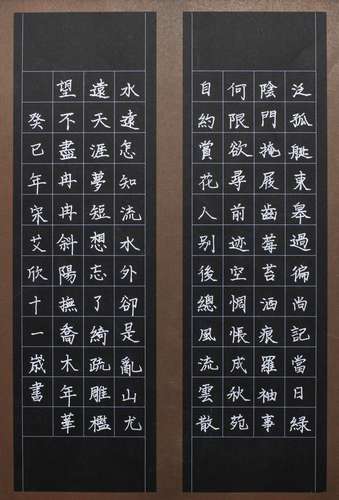 泛孤艇東皋過徧尚記當日綠
陰門掩屐齒莓苔酒痕羅袖事
何限欲尋前迹空惆悵成秋苑
自約賞花人别後總風流雲散
水遠怎知流水外卻是亂山尤
遠天涯夢短想忘了綺疏雕檻
望不盡冉冉斜陽撫喬木年華
癸巳年宋艾欣十一歲書